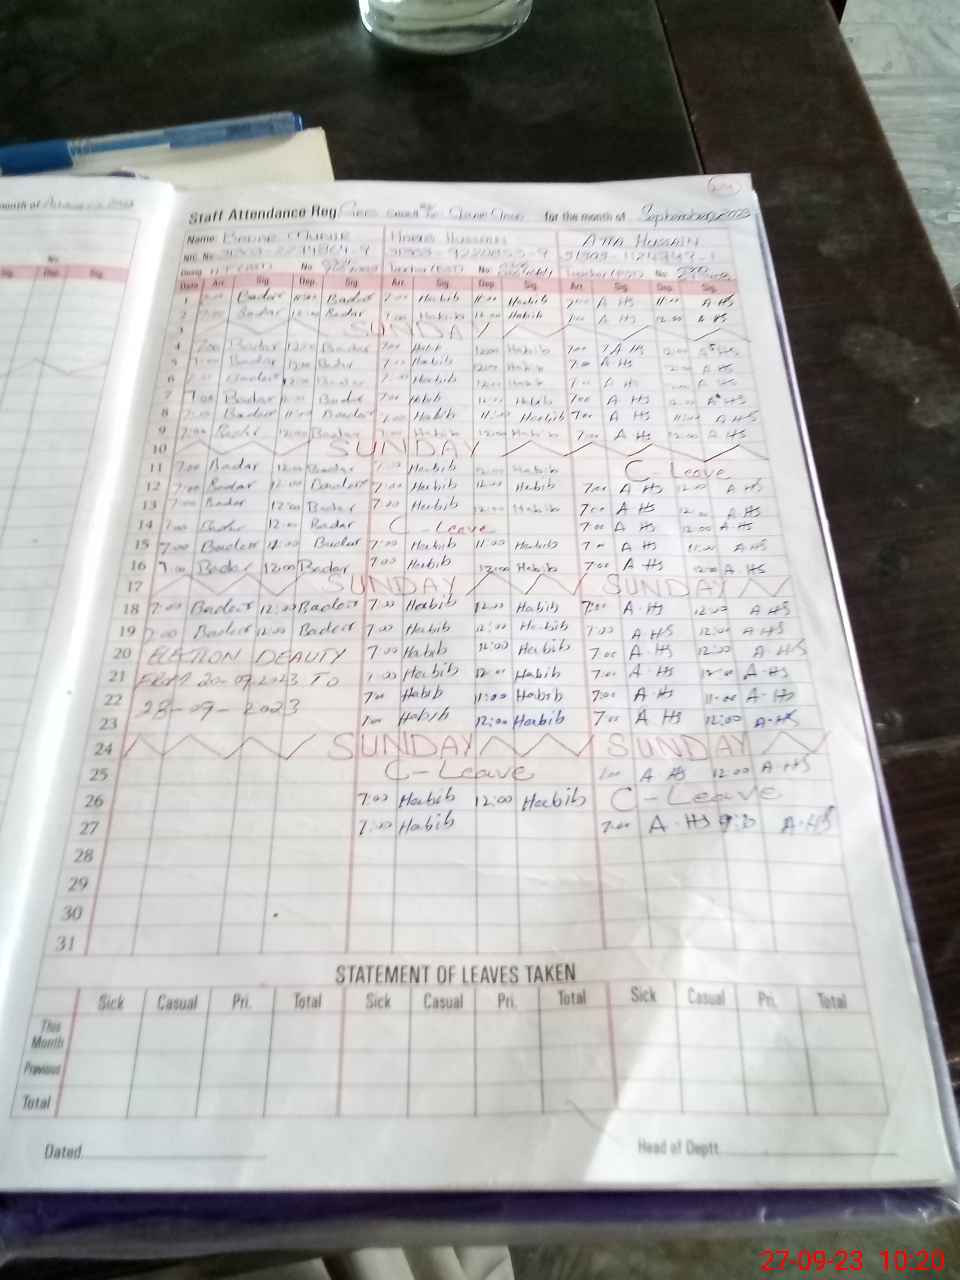 Staff Attendance Reg for the month of September, 2023
Name HUSSAIN ATTA HUSSAIN
N.I.C. No
Desig No No: No:
Date Arr. Sig. Dep. Sig. Arr. Sig. Dep. Sig. Arr. Sig. Dep. Sig.
1 Badar Badar 7:00 Habib 11:00 Habib 7:00 A HS 11:00 A HS
2 Badar Badar Habib 12:00 Habib A HS 12:00 A HS
3 SUNDAY
4 7:00 Badar 12:00 Badar 7:00 Habib 12:00 Habib 7:00 A HS 12:00
5 7:00 Badar 12:00 Badar 7:00 Habib 12:00 Habib 7:00 A HS A HS
6 Badar 12:00 Badar 7:00 Habib 12:00 Habib A HS A HS
7 7:00 Badar Badar 7:00 Habib 12:00 Habib 7:00 A HS 12:00 A HS
8 7:00 Badar 11:00 Badar 7:00 Habib 11:00 Habib 7:00 A HS 11:00 A HS
9 7:00 Badar 12:00 Badar 7:00 Habib 12:00 Habib 7:00 A HS 12:00 A HS
10 SUNDAY
11 7:00 Badar 12:00 Badar 7:00 Habib 12:00 Habib C-Leave
12 7:00 Badar 12:00 Badar 7:00 Habib 12:00 Habib 7:00 A HS 12:00 A HS
13 7:00 Badar 12:00 Badar 7:00 Habib 12:00 Habib 7:00 A HS 12:00 A HS
14 7:00 Badar 12:00 Badar C-Leave 7:00 A HS 12:00 A HS
15 7:00 Badar 12:00 Badar 7:00 Habib 11:00 Habib 7:00 A HS 11:00 A HS
16 7:00 Badar 12:00 Badar 7:00 Habib 12:00 Habib 7:00 A HS 12:00 A HS
17 SUNDAY SUNDAY
18 7:00 Badar 12:00 Badar 7:00 Habib 12:00 Habib 7:00 A-HS 12:00 A HS
19 7:00 Badar 12:00 Badar 7:00 Habib 12:00 Habib 7:00 A HS 12:00 A HS
20 ELATION DEAUTY 7:00 Habib 12:00 Habib 7:00 A HS 12:00 A-HS
21 FROM 20-09-2023 TO 7:00 Habib 12:00 Habib 7:00 A-HS 12:00 A-HS
22 28-09-2023 7:00 Habib 11:00 Habib 7:00 A-HS 11:00 A-HS
23 7:00 Habib 12:00 Habib 7:00 A HS 12:00 A-HS
24 SUNDAY SUNDAY
25 C-Leave 7:00 A HS 12:00 A-HS
26 7:00 Habib 12:00 Habib C-Leave
27 7:00 Habib 7:00 A-HS A-HS
28
29
30
31
STATEMENT OF LEAVES TAKEN
Sick Casual Pri. Total Sick Casual Pri. Total Sick Casual Pri. Total
This Month
Previous
Total
Dated Head of Deptt
27-09-23 10:20